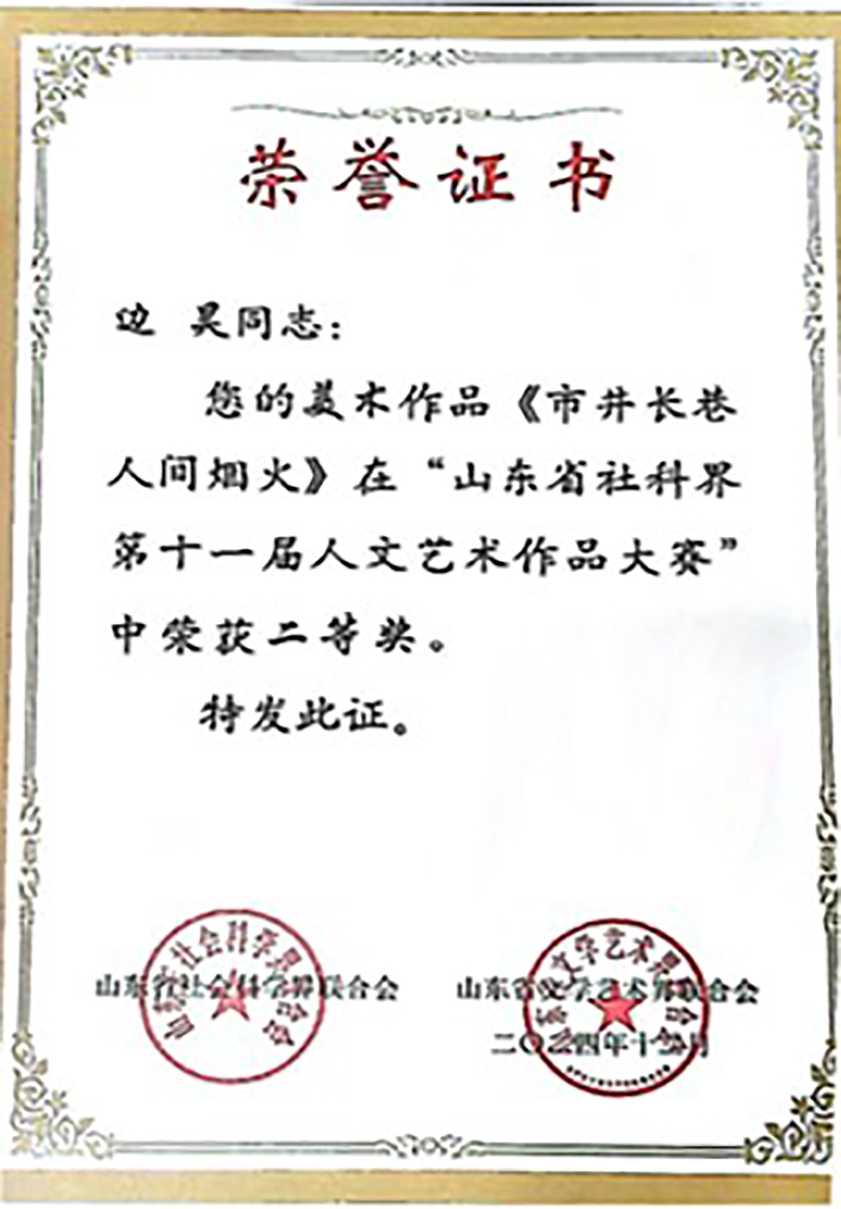 荣誉证书
边 昊同志：
您的美术作品《市井长巷
人间烟火》在“山东省社科界
第十一届人文艺术作品大赛”
中荣获二等奖。
特发此证。
山东省社会科学界联合会
山东省文学艺术界联合会
二〇二四年十 月